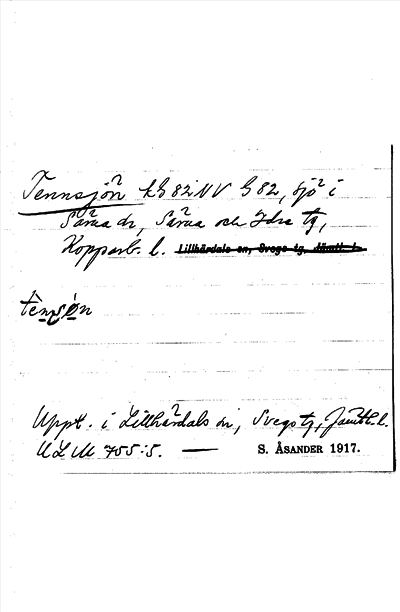 Tennsjön kG 82 NV G 82, sjö i
Särna sn, Särna och Idre tg,
Kopparb. l. Lillhärdals sn, Svegs tg, Jämtl. l.
tènsòn
Uppt. i Lillhärdals sn, Svegs tg, Jämtl. l.
ULMA 755:5. — S. ÅSANDER 1917.